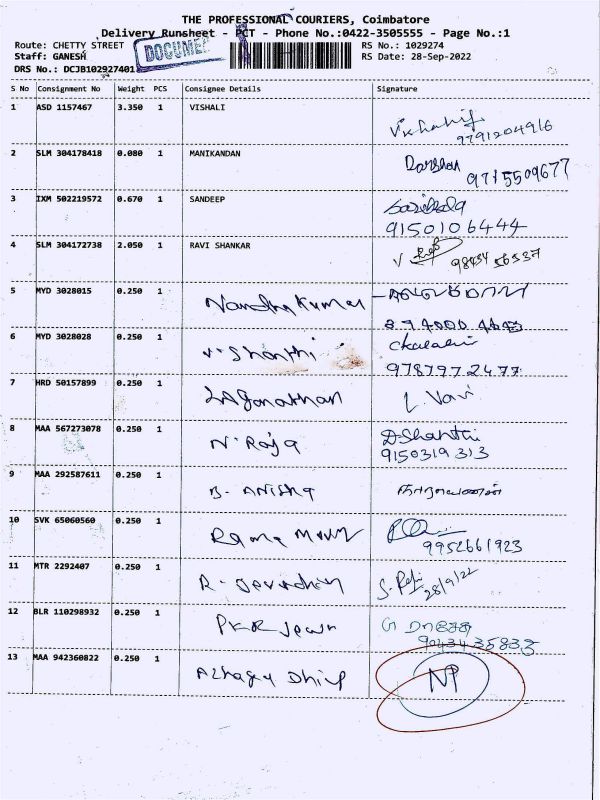 THE PROFESSIONAL COURIERS, Coimbatore
Delivery Runsheet - PCT - Phone No.:0422-3505555 - Page No.:1
Route: CHETTY STREET RS No.: 1029274
Staff: GANESH RS Date: 28-Sep-2022
DRS No.: DCJB102927401
S No Consignment No Weight PCS Consignee Details Signature
1 ASD 1157467 3.350 1 VISHALI
9791204916
2 SLM 304178418 0.080 1 MANIKANDAN Darshan
9715509677
3 IXM 502219572 0.670 1 SANDEEP
9150106444
4 SLM 304172738 2.050 1 RAVI SHANKAR
5 MYD 3028015 0.250 1 Nandha Kumar
6 MYD 3028028 0.250 1 V. Shanthi
9787972477
7 HRD 50157899 0.250 1 L. Vani
8 MAA 567273078 0.250 1 N. Raja D. Shanthi
9150319313
9 MAA 292587611 0.250 1 B. ANISHA
10 SVK 65060560 0.250 1
9952661923
11 MTR 2292407 0.250 1
28/9/22
12 BLR 110298932 0.250 1 PKR
9043435833
13 MAA 942360822 0.250 1 NP